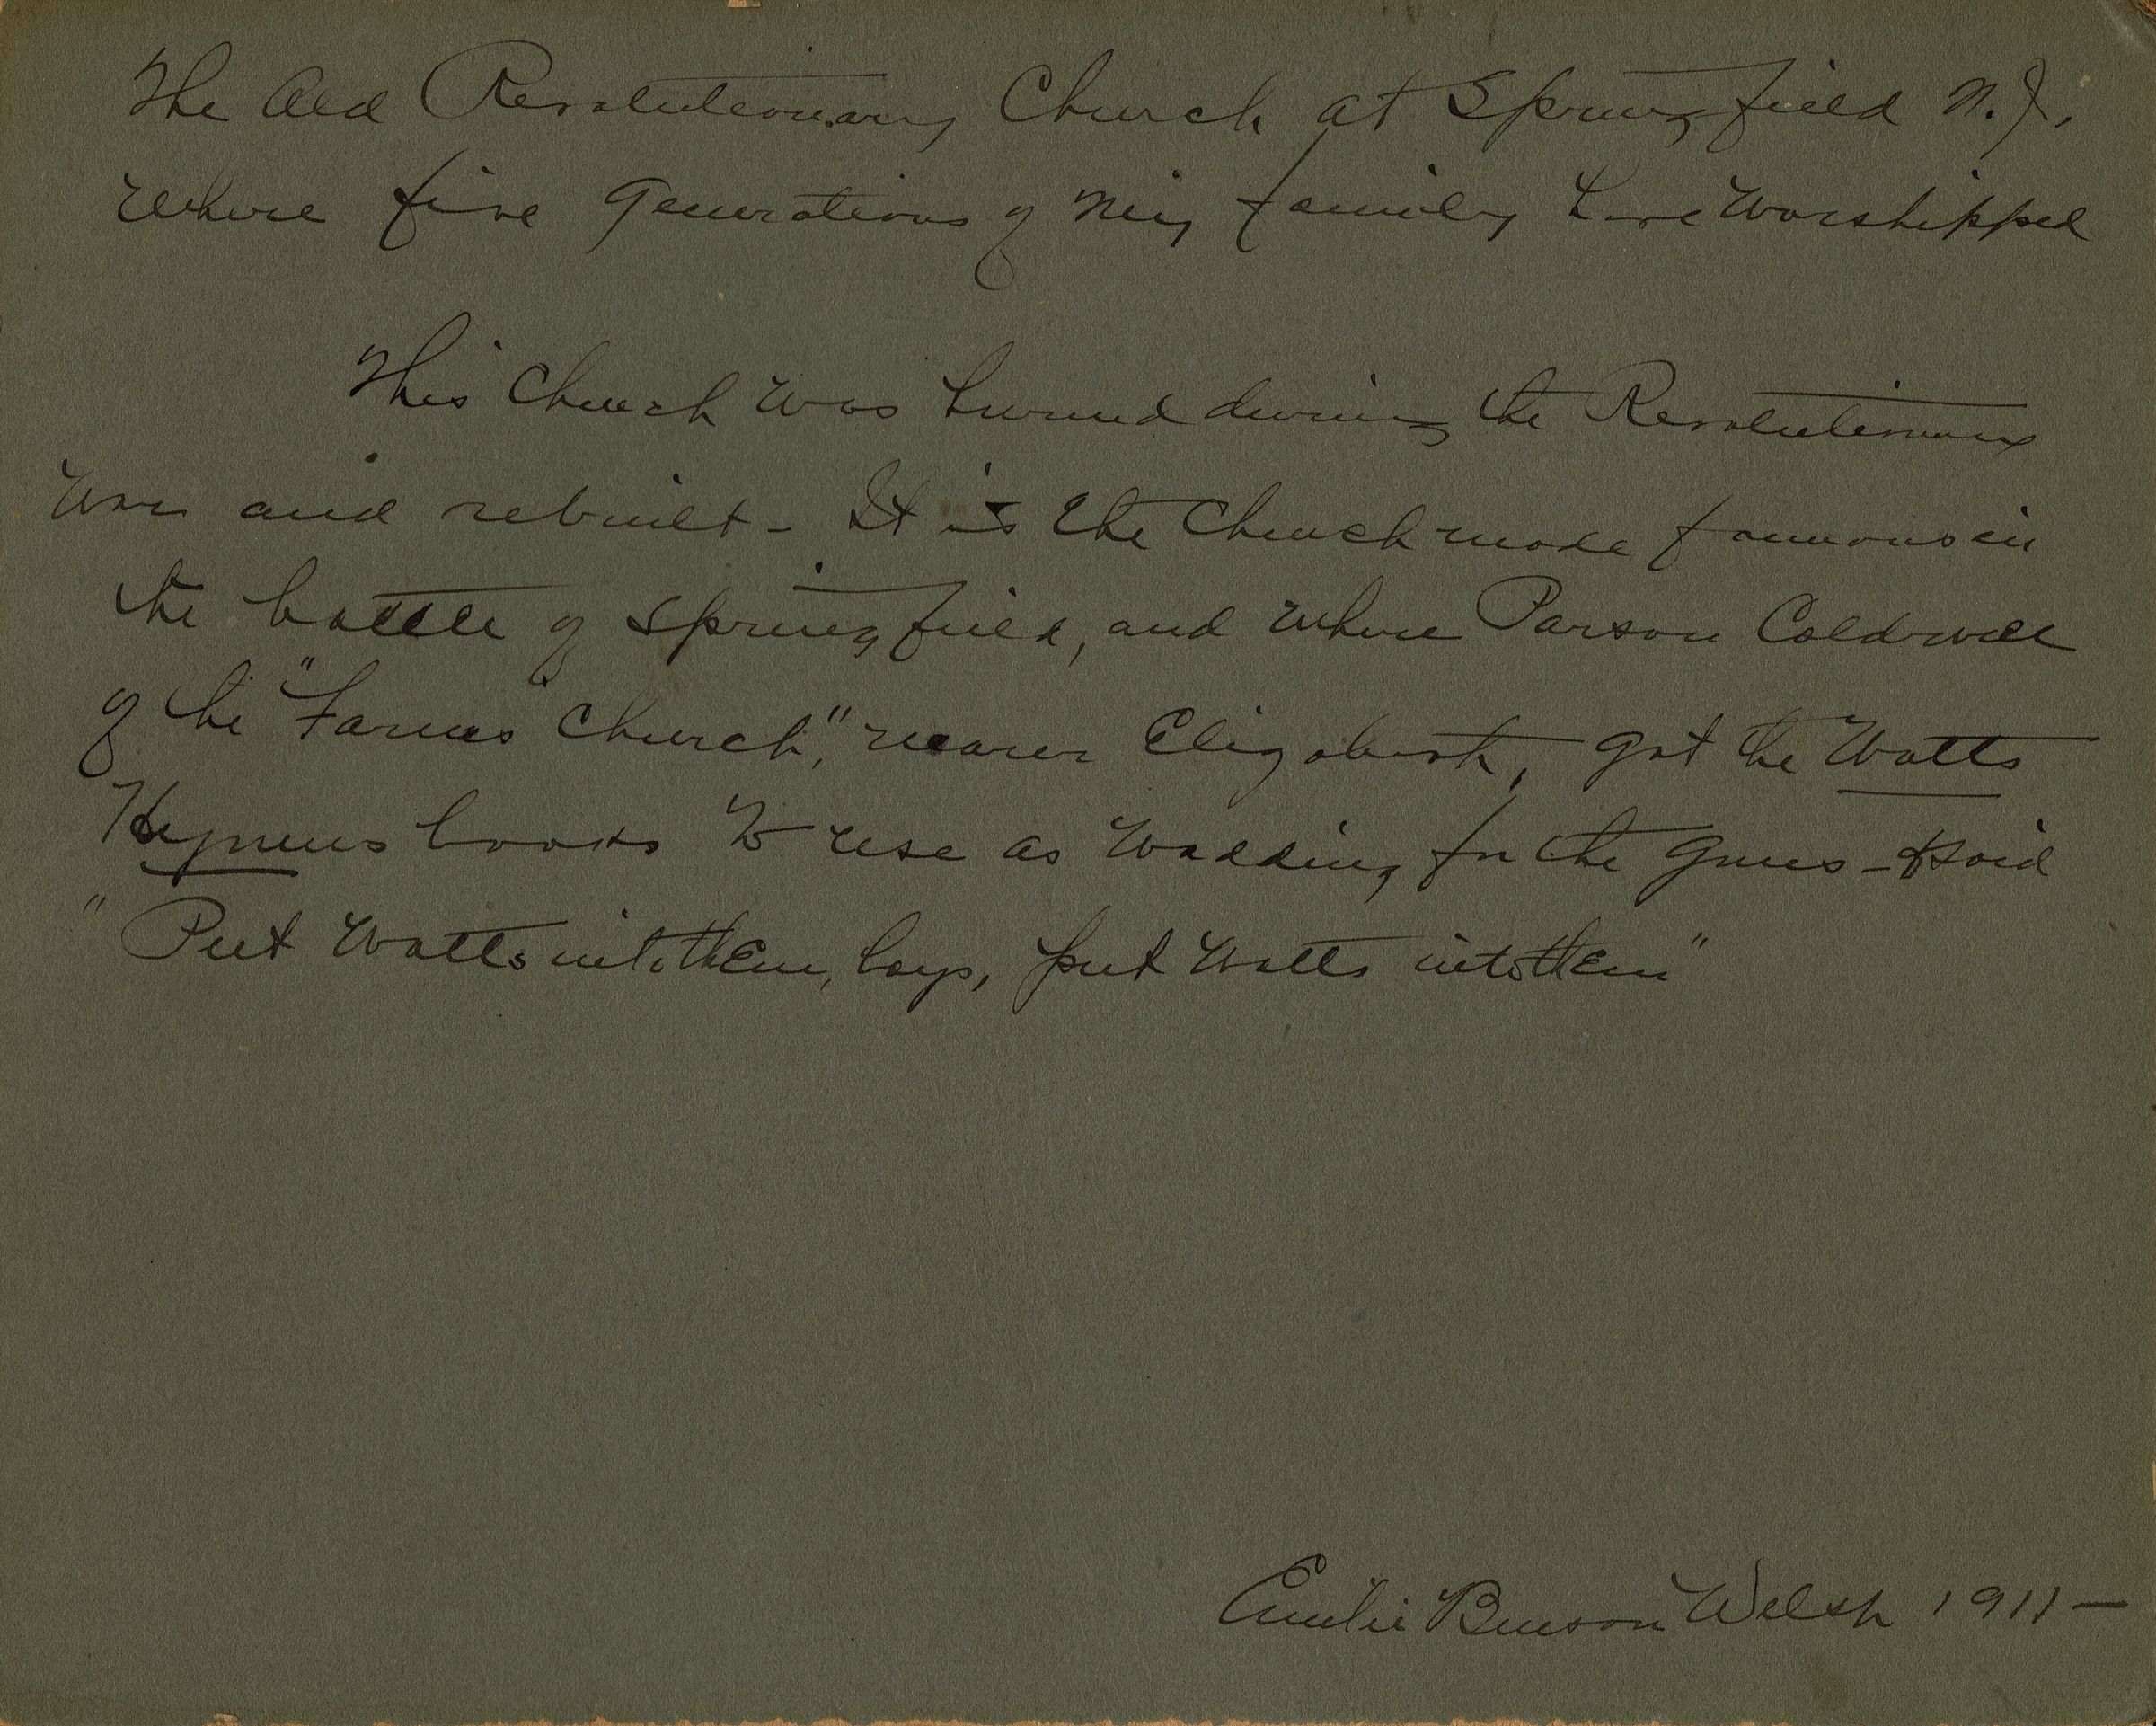 The Old Revolutionary Church at Springfield N.J.,
where five generations of my family have worshipped
This Church was burned during the Revolutionary
War and rebuilt - It is the Church made famous in
the battle of Springfield, and where Parson Caldwell
of the "Farms Church," nearer Elizabeth, got the Watts
Hymns books to use as wadding for the guns - & said
"Put Watts into them, boys, put Watts into them"
Emilie Benson Welsh 1911 -